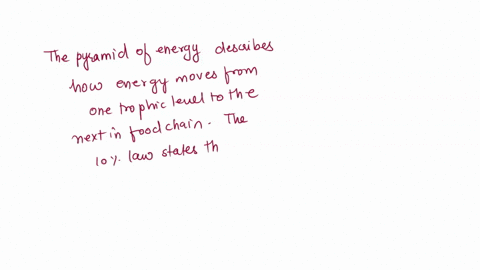 The pyramid of energy describes
how energy moves from
one trophic level to the
next in food chain. The
10% law states th